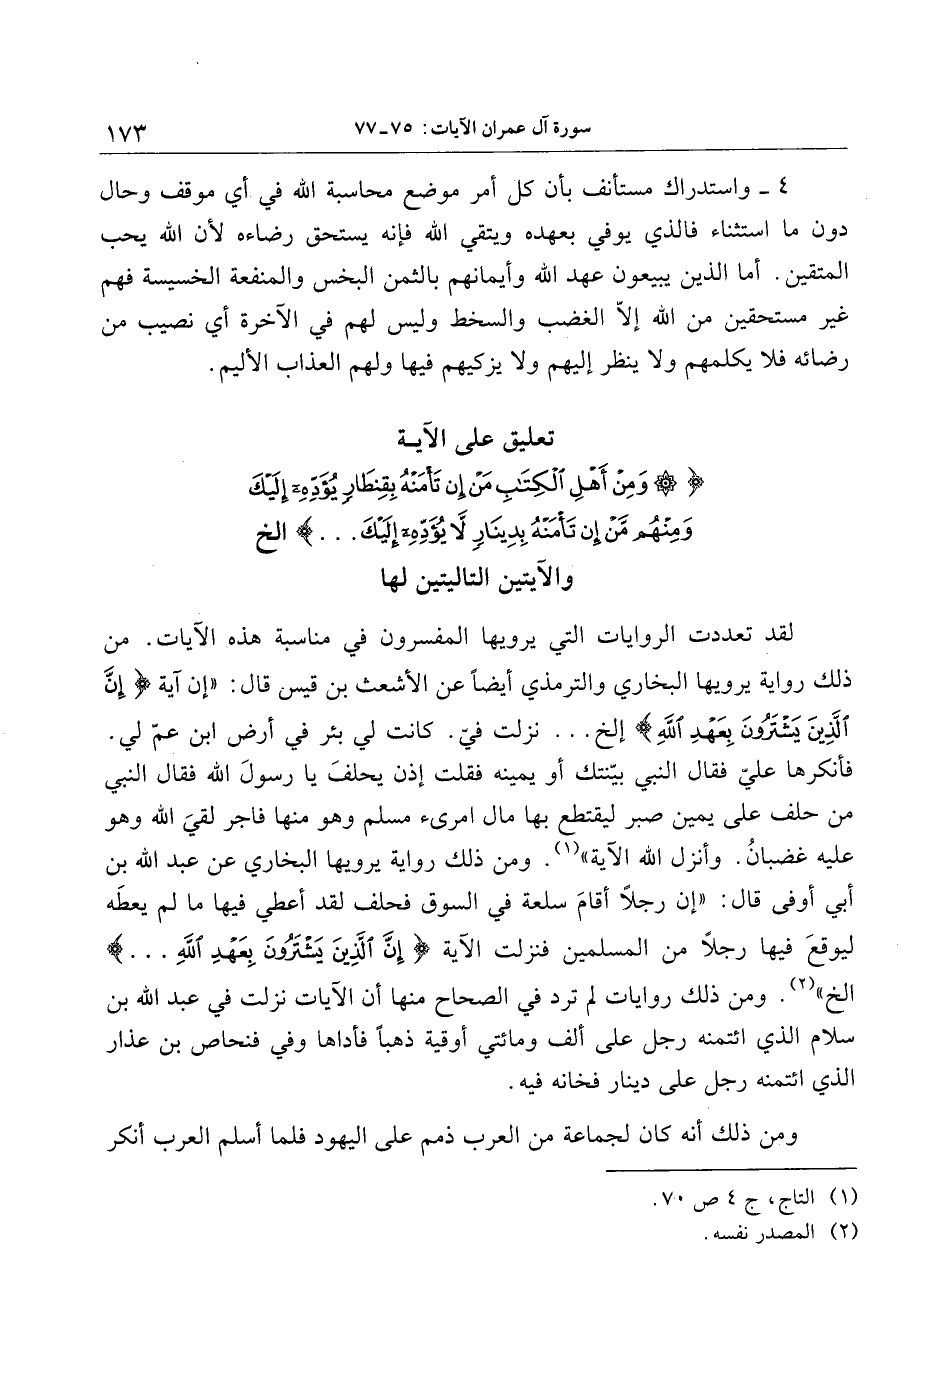 سورة آل عمران الآيات: ٧٥ـ٧٧ ١٧٣
٤ ـ واستدراك مستأنف بأن كل أمر موضع محاسبة الله في أي موقف وحال
دون ما استثناء فالذي يوفي بعهده ويتقي الله فإنه يستحق رضاءه لأن الله يحب
المتقين. أما الذين يبيعون عهد الله وأيمانهم بالثمن البخس والمنفعة الخسيسة فهم
غير مستحقين من الله إلاّ الغضب والسخط وليس لهم في الآخرة أي نصيب من
رضائه فلا يكلمهم ولا ينظر إليهم ولا يزكيهم فيها ولهم العذاب الأليم.
تعليق على الآية
﴿ ۞ وَمِنْ أَهْلِ ٱلْكِتَٰبِ مَنْ إِن تَأْمَنْهُ بِقِنطَارٍ يُؤَدِّهِۦٓ إِلَيْكَ
وَمِنْهُم مَّنْ إِن تَأْمَنْهُ بِدِينَارٍ لَّا يُؤَدِّهِۦٓ إِلَيْكَ . . . ﴾ الخ
والآيتين التاليتين لها
لقد تعددت الروايات التي يرويها المفسرون في مناسبة هذه الآيات. من
ذلك رواية يرويها البخاري والترمذي أيضاً عن الأشعث بن قيس قال: «إن آية ﴿ إِنَّ
ٱلَّذِينَ يَشْتَرُونَ بِعَهْدِ ٱللَّهِ ﴾ إلخ. . . نزلت فيّ. كانت لي بئر في أرض ابن عمّ لي.
فأنكرها عليّ فقال النبي بيّنتك أو يمينه فقلت إذن يحلفَ يا رسولَ الله فقال النبي
من حلف على يمين صبر ليقتطع بها مال امرىء مسلم وهو منها فاجر لقيَ الله وهو
عليه غضبانُ. وأنزل الله الآية»(١). ومن ذلك رواية يرويها البخاري عن عبد الله بن
أبي أوفى قال: «إن رجلاً أقامَ سلعة في السوق فحلف لقد أعطي فيها ما لم يعطَه
ليوقعَ فيها رجلاً من المسلمين فنزلت الآية ﴿ إِنَّ ٱلَّذِينَ يَشْتَرُونَ بِعَهْدِ ٱللَّهِ . . . ﴾
الخ»(٢). ومن ذلك روايات لم ترد في الصحاح منها أن الآيات نزلت في عبد الله بن
سلام الذي ائتمنه رجل على ألف ومائتي أوقية ذهباً فأداها وفي فنحاص بن عذار
الذي ائتمنه رجل على دينار فخانه فيه.
ومن ذلك أنه كان لجماعة من العرب ذمم على اليهود فلما أسلم العرب أنكر
(١) التاج، ج ٤ ص ٧٠.
(٢) المصدر نفسه.